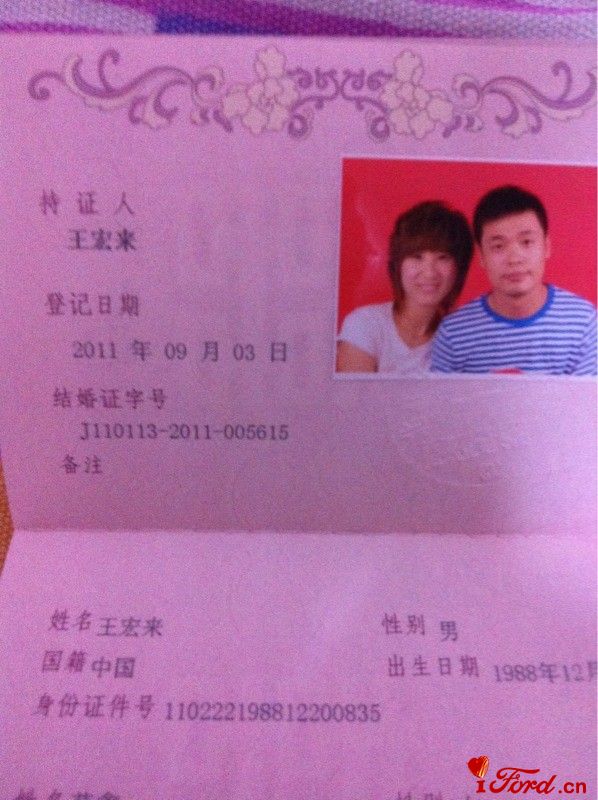 持证人
王宏来
登记日期
2011 年 09 月 03 日
结婚证字号
J110113-2011-005615
备注
姓名 王宏来 性别 男
国籍 中国 出生日期 1988年12月
身份证件号 110222198812200835
姓名 性别
iFord.cn